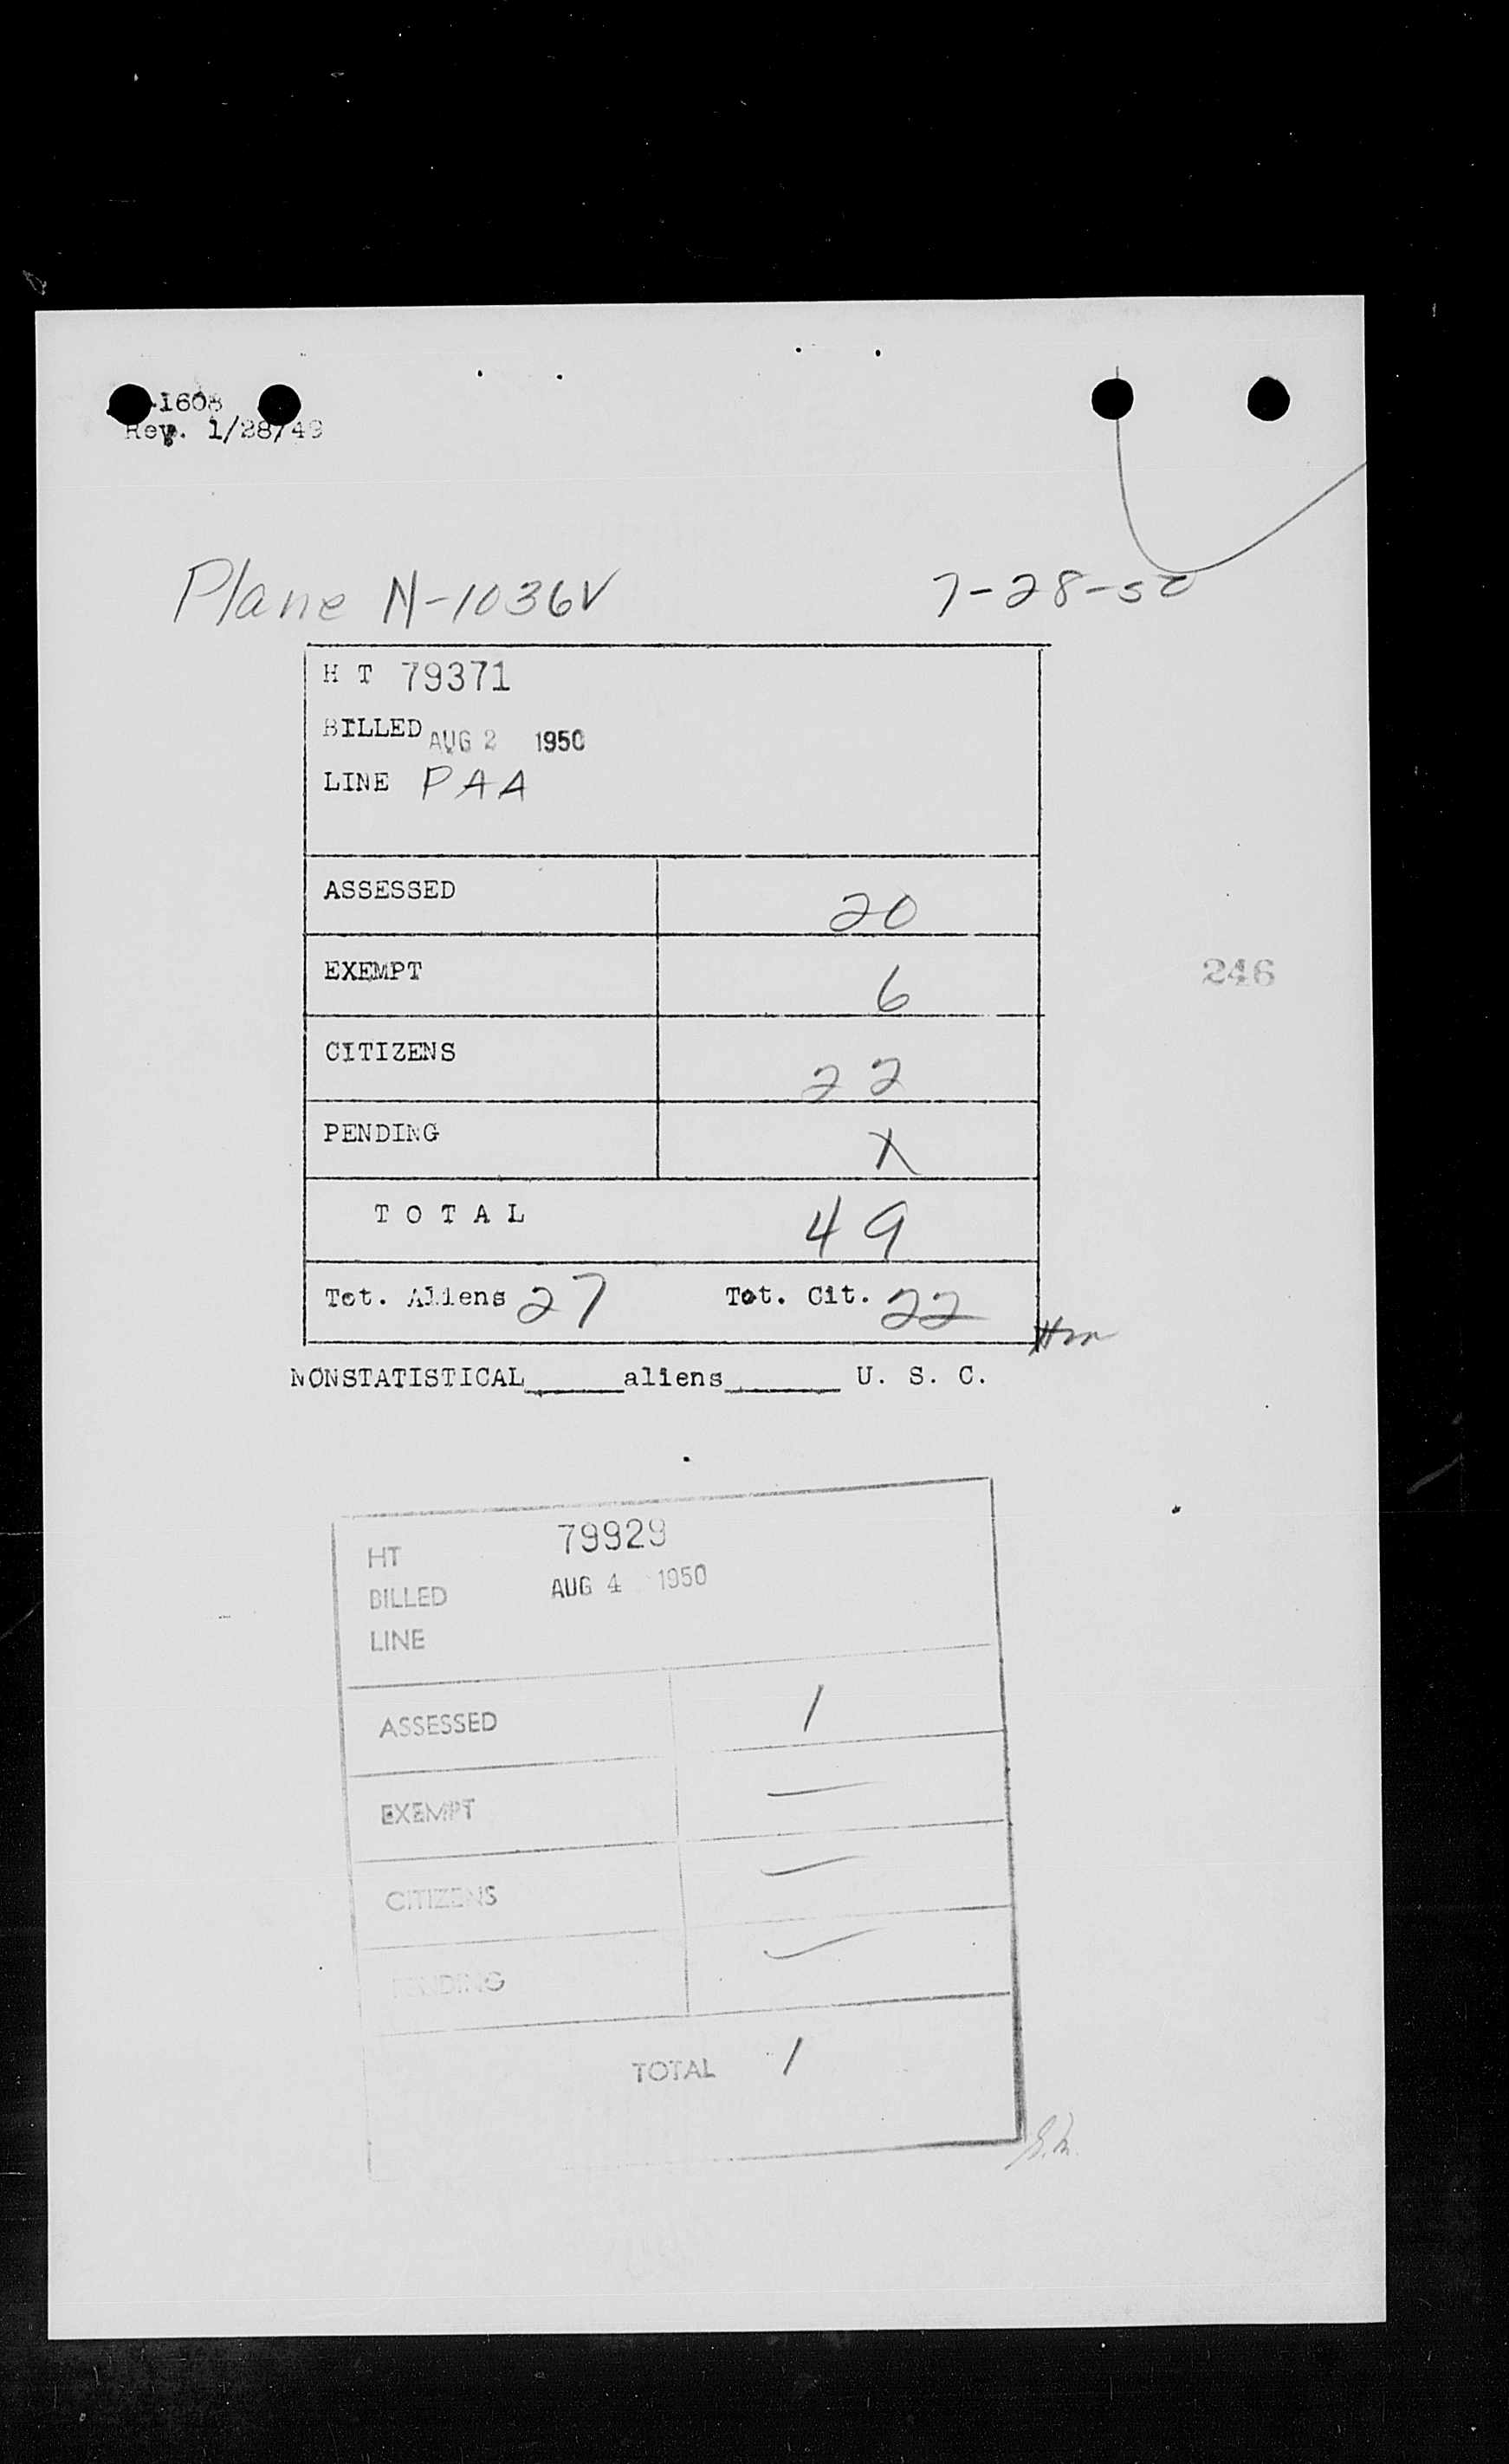 -1608
Rev. 1/28/49
Plane N-1036V 7-28-50
H T 79371
BILLED AUG 2 1950
LINE PAA
ASSESSED 20
EXEMPT 6
246
CITIZENS 22
PENDING X
T O T A L 49
Tot. Aliens 27 Tot. Cit. 22
NONSTATISTICAL_____aliens______ U. S. C.
HT 79929
BILLED AUG 4 1950
LINE
ASSESSED 1
EXEMPT —
CITIZENS —
PENDING —
TOTAL 1